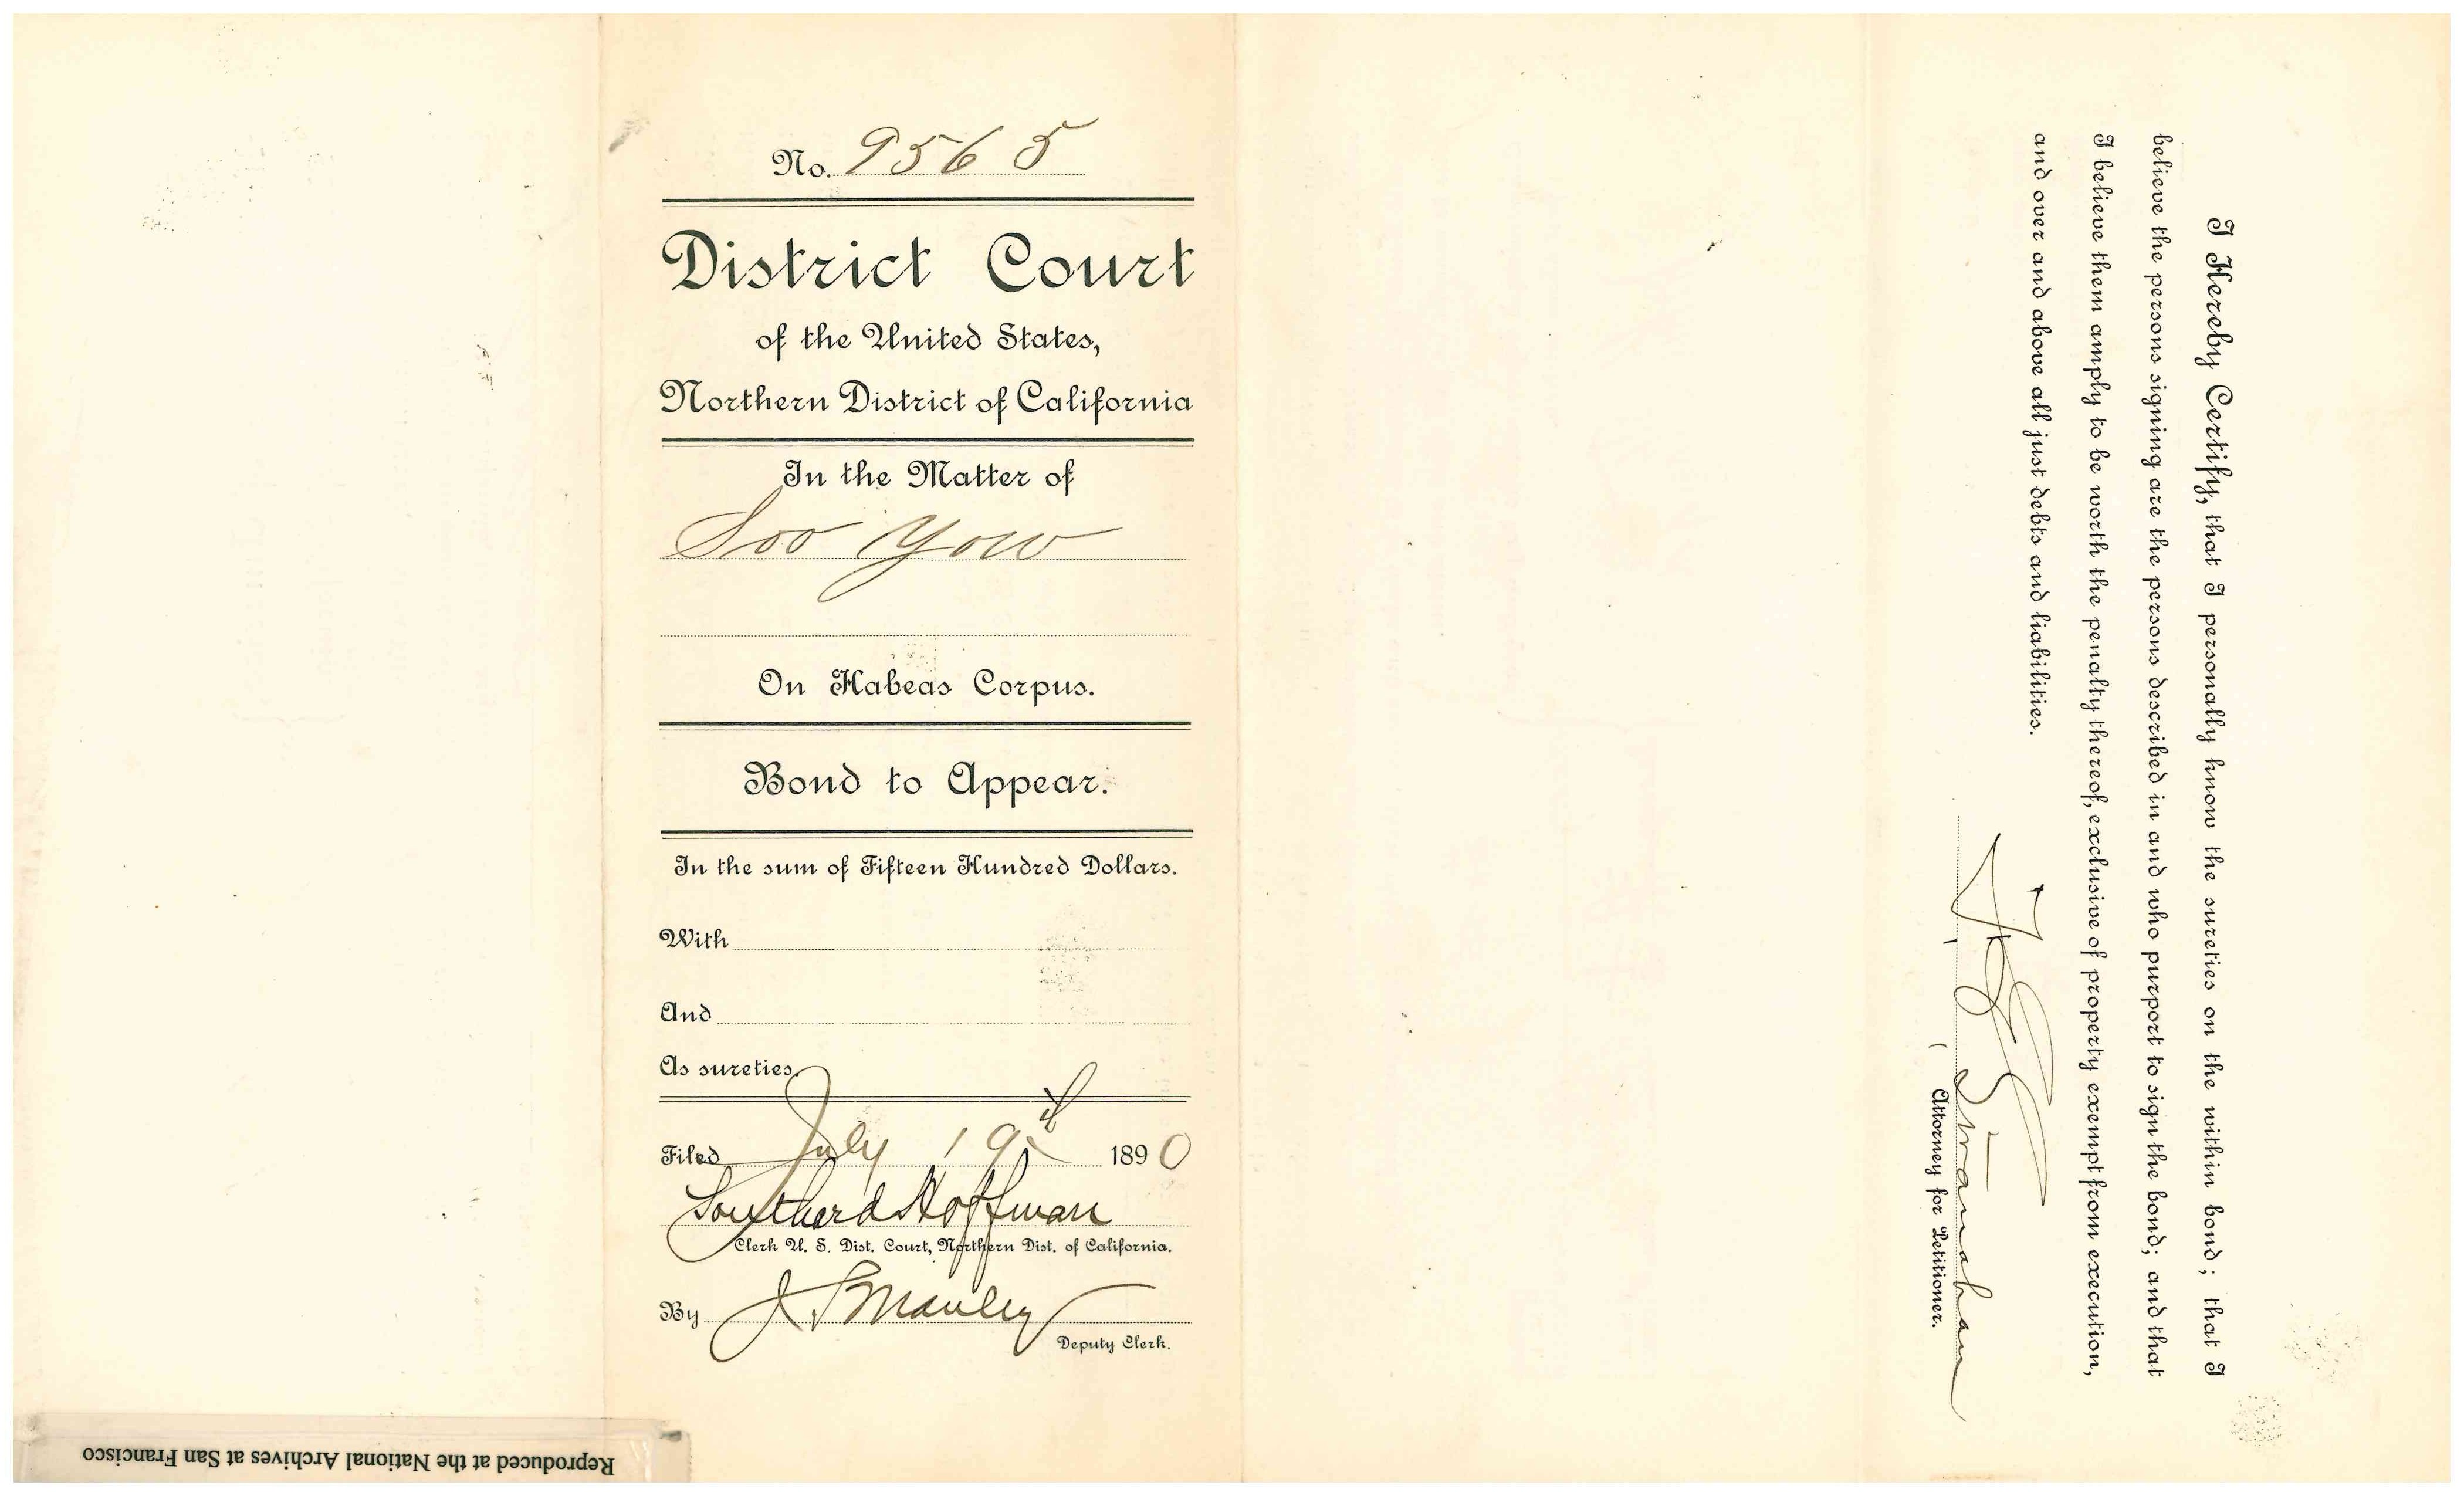 No. 9565
District Court
of the United States,
Northern District of California
In the Matter of
Soo Yow
On Habeas Corpus.
Bond to Appear.
In the sum of Fifteen Hundred Dollars.
With
And
As sureties.
Filed July 19th 1890
Southard Hoffman
Clerk U. S. Dist. Court, Northern Dist. of California.
By J. S. Manley
Deputy Clerk.
I Hereby Certify, that I personally know the sureties on the within bond; that I
believe the persons signing are the persons described in and who purport to sign the bond; and that
I believe them amply to be worth the penalty thereof, exclusive of property exempt from execution,
and over and above all just debts and liabilities.
Stanahan
Attorney for Petitioner.
Reproduced at the National Archives at San Francisco